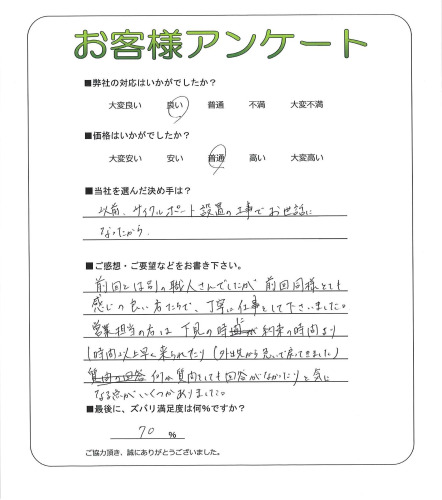 お客様アンケート
■弊社の対応はいかがでしたか？
大変良い 良い 普通 不満 大変不満
■価格はいかがでしたか？
大変安い 安い 普通 高い 大変高い
■当社を選んだ決め手は？
以前、サイクルポート設置の工事でお世話に
なったから。
■ご感想・ご要望などをお書き下さい。
前回とは別の職人さんでしたが前回同様とても
感じの良い方たちで、丁寧に仕事をして下さいました。
営業担当の方は下見の時に約束の時間より
1時間以上早く来られたり(外出先から急いで戻ってきました)
何か質問をしても回答がなかったりと気に
なる点がいくつかありました。
■最後に、ズバリ満足度は何%ですか？
70 %
ご協力頂き、誠にありがとうございました。